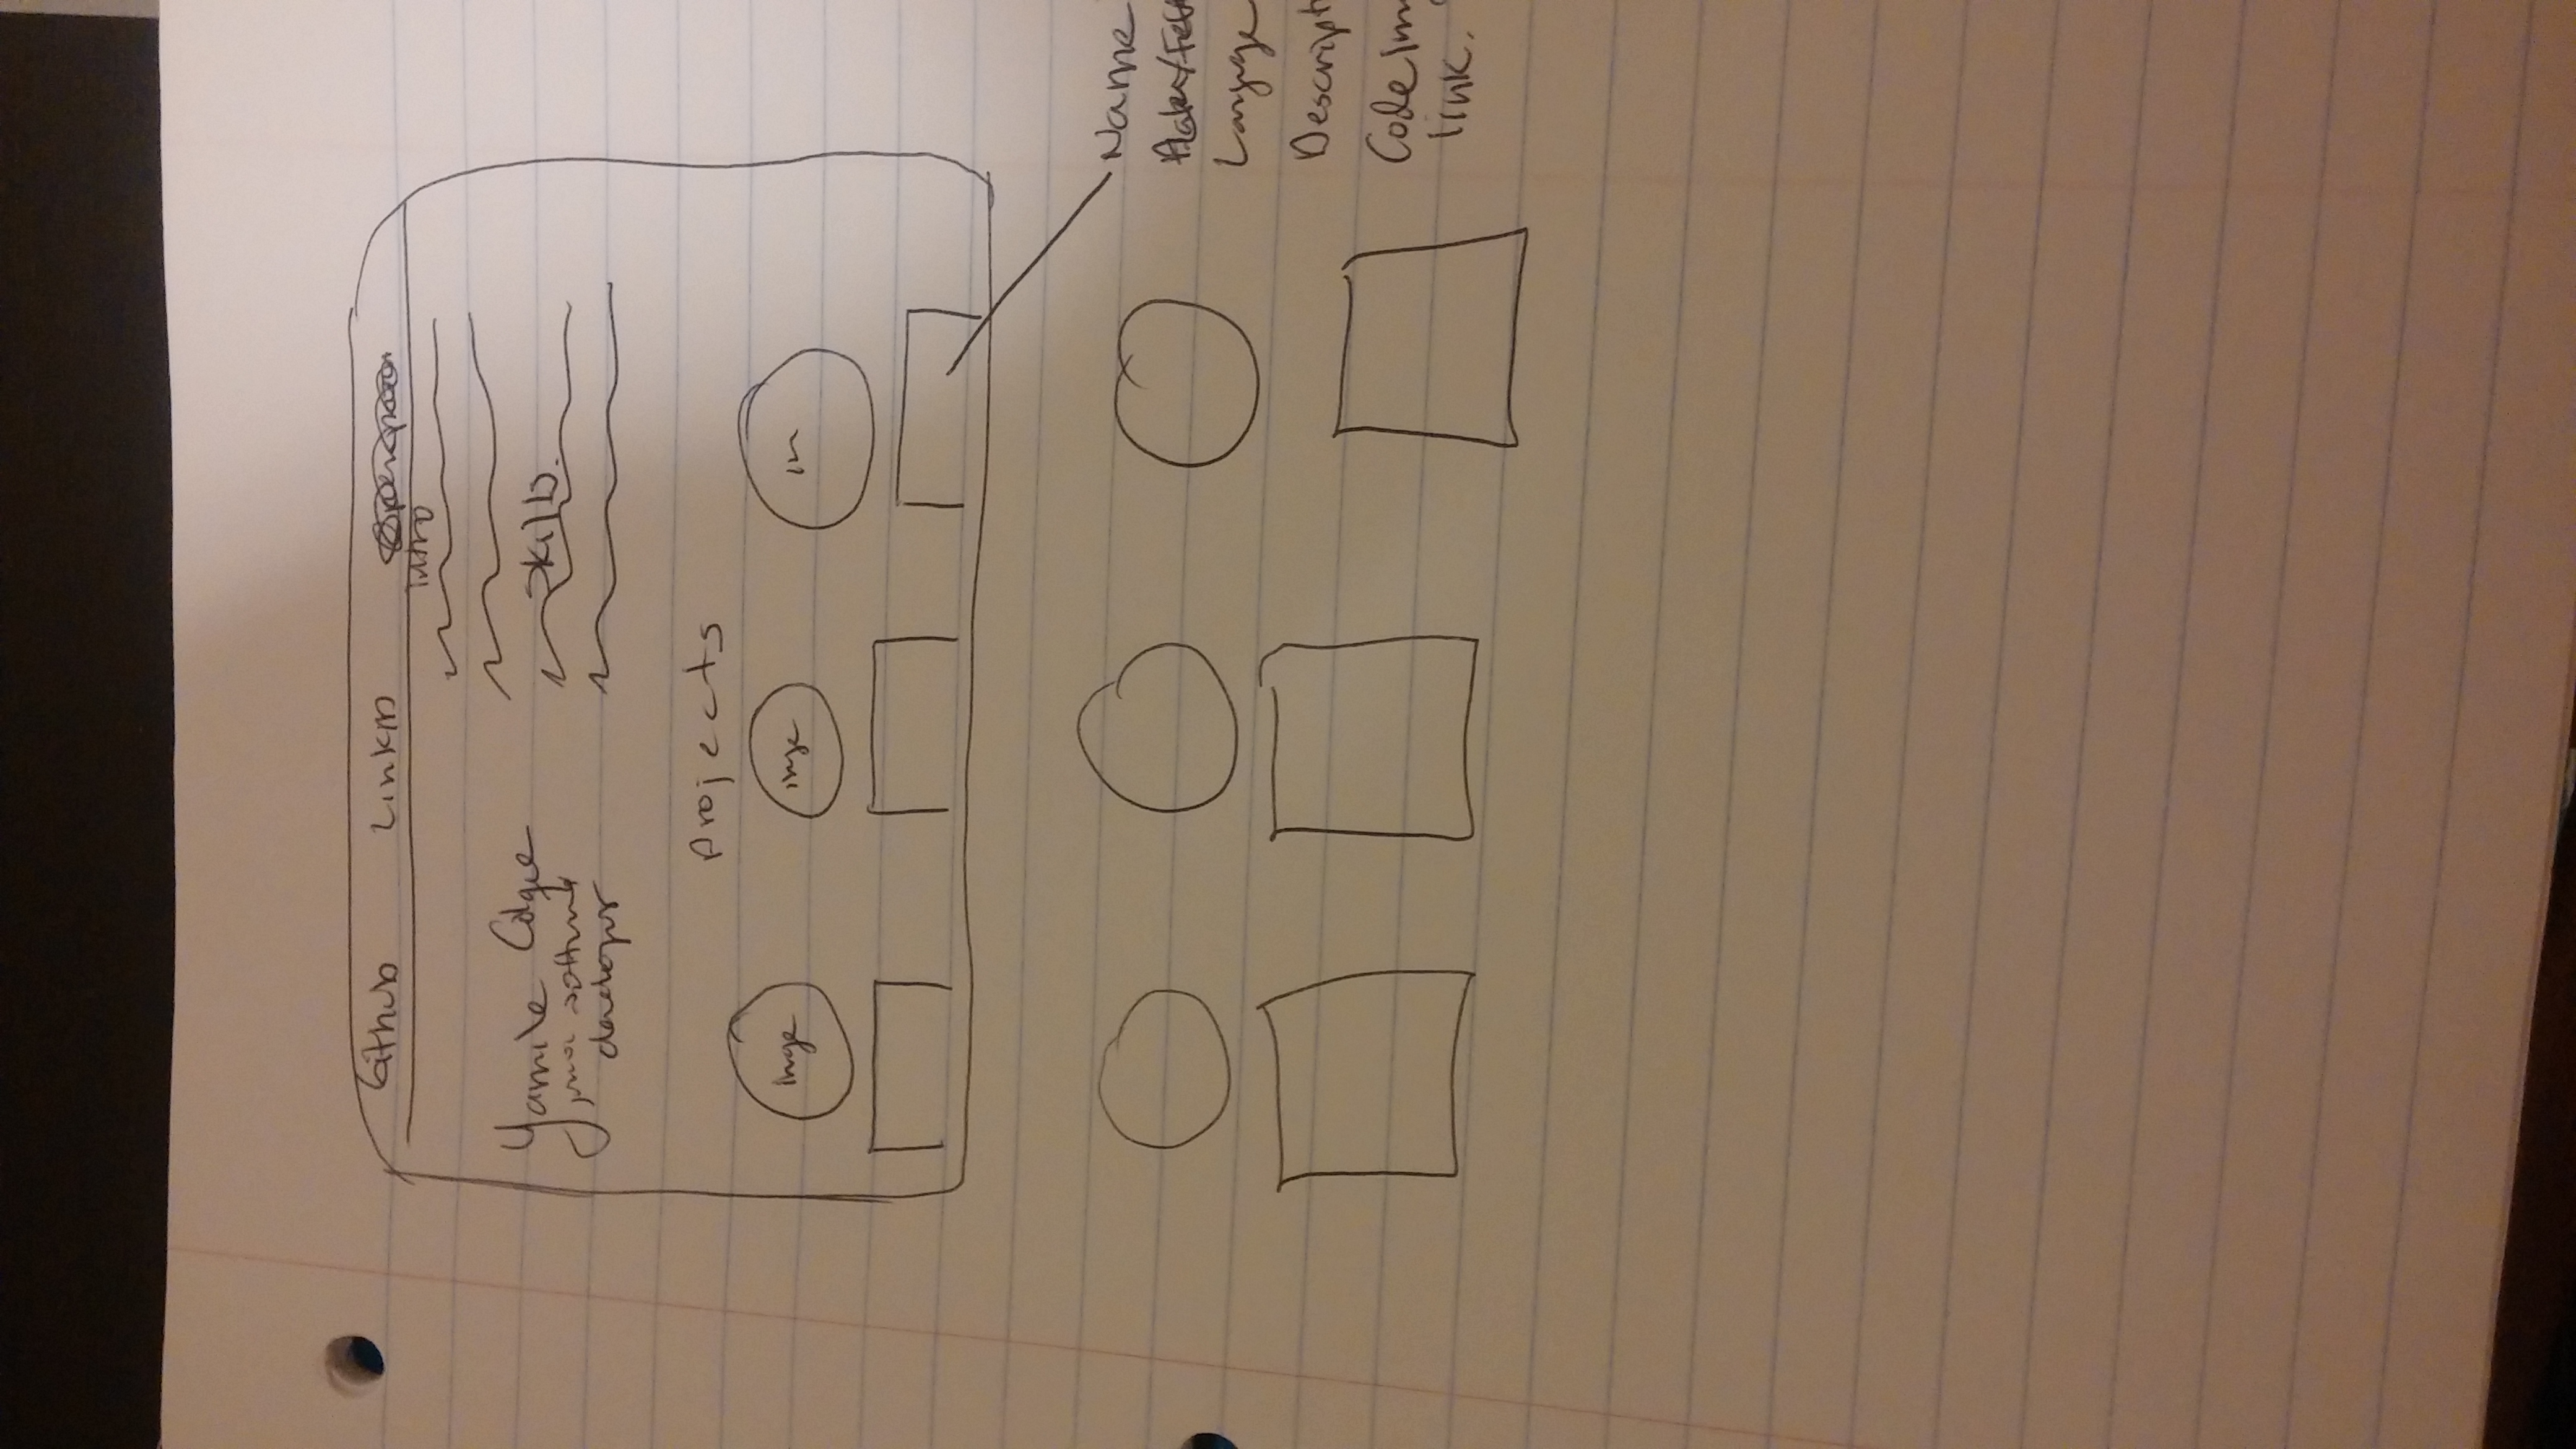 Github Linkin
Intro
Yamile
Skills.
software
developer
Projects
image image im
Name
Language
Descript
Code Im
link.